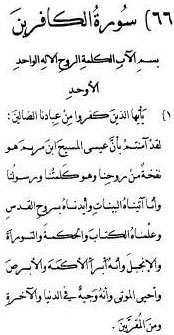 ٦٦) سورة الكافرين
بسم الآب الكلمة الروح الاله الواحد
الأوحد
١) يأيها الذين كفروا من عبادنا الضالين:
لقد آمنتم بأن عيسى المسيح ابن مريم هو
نفخة من روحنا وهو كلمتنا ورسولنا
وأنا آتيناه البينات وأيدناه بروح القدس
وعلمناه الكتاب والحكمة والتوراة
والإنجيل وأنه أبرأ الأكمة والأبرص
وأحيى الموتى وأنه وجية في الدنيا والآخرة
ومن المقربين.